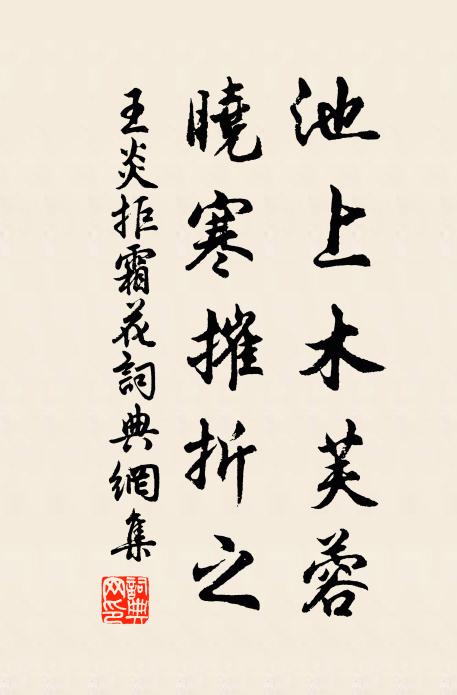 池上木芙蓉
曉寒摧折之
王炎拒霜花詞典網集
詞典网印